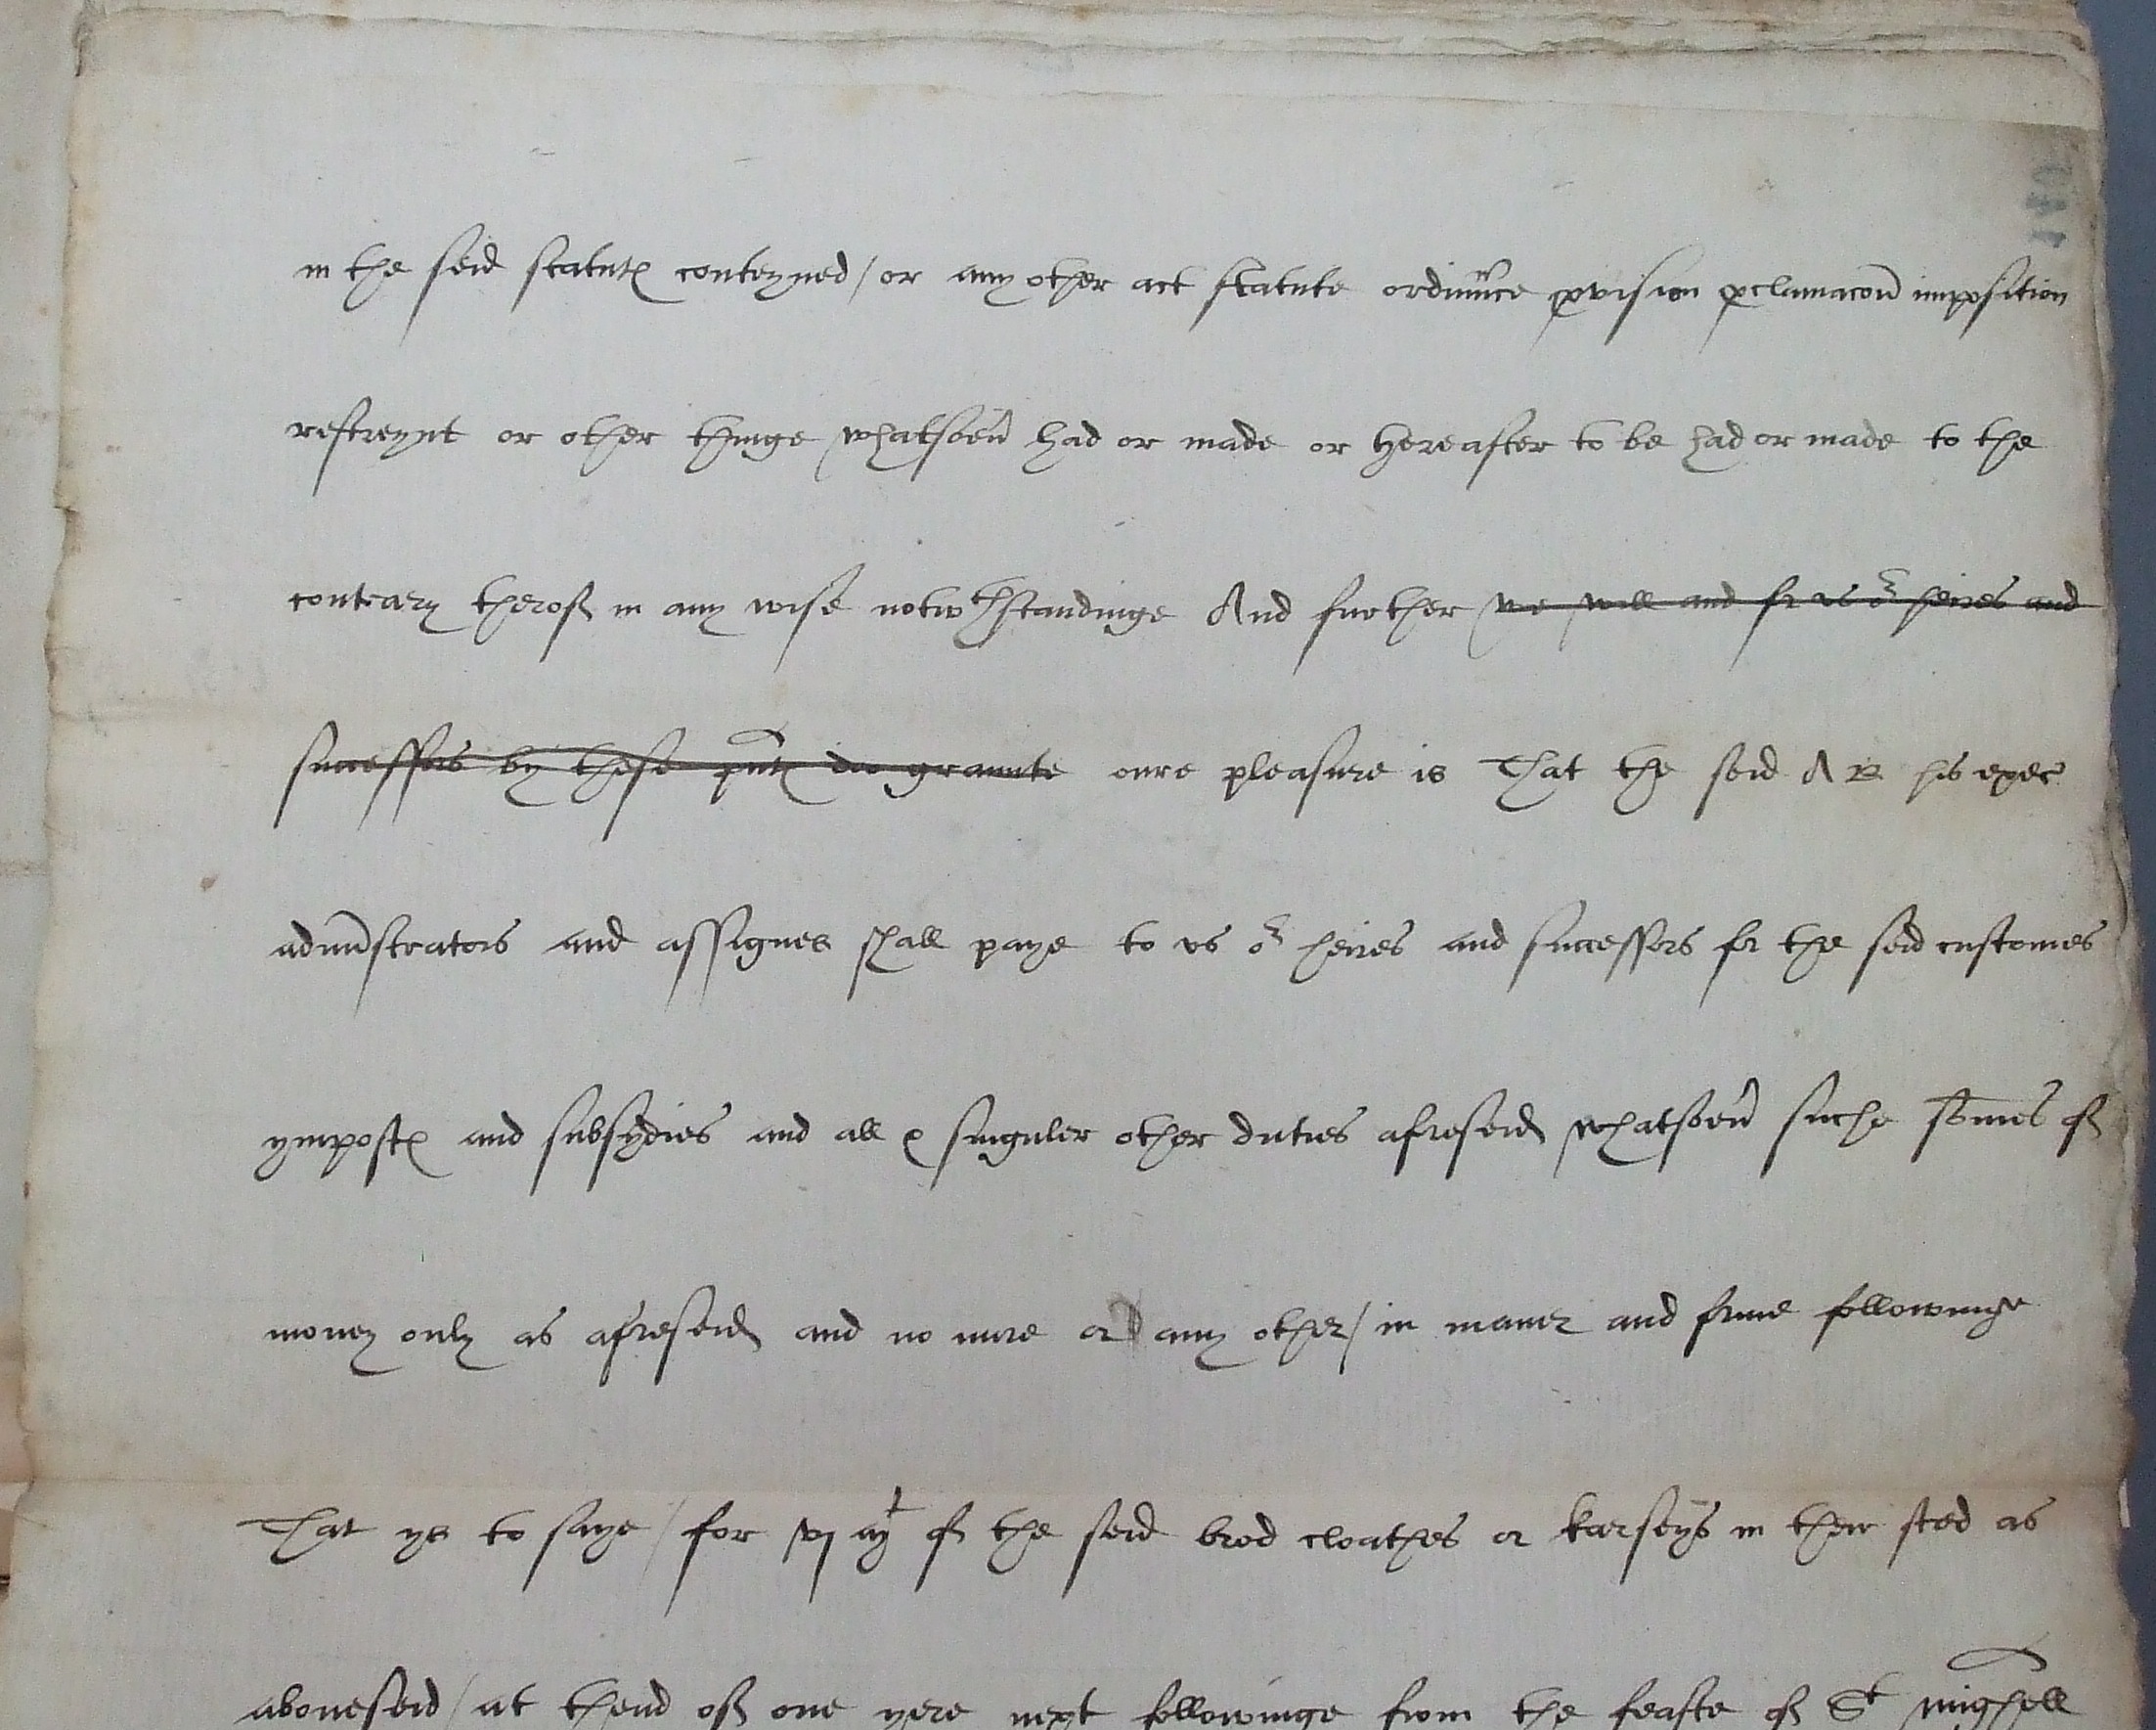 in the seid statut(es) conteyned / or any other act statute ordinnce pvision pclamacon imposition
restreynt or other thinge whatsoeu) had or made or hereafter to be had or made to the
contrary therof in any wise notwthstandinge And further we will and for vs or heires and
successors by these pnt(es) doo graunte oure pleasure is That the seid A B his exec
adminstrators and assignes shall paye to vs or heires and successors for the seid customes
ympost(es) and subsydies and all & singuler other duties aforeseid whatsoeu) suche somes of
money only as aforeseid and no more or any other / in maner and forme followinge
That ys to saye / for vj ml of the seid brod cloathes or karseys in their sted as
aboueseid / at thend of one yere next followinge from the feaste of St Mighell